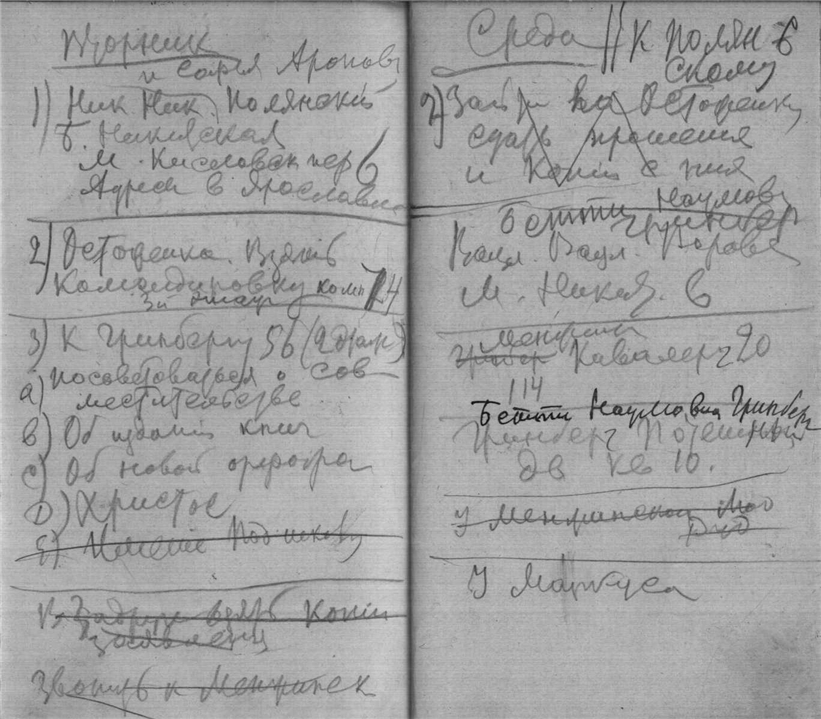 Вторник
и Софья Ароновн
1) Ник Ник. Полянский
Б. Никитская
М. Кисловск пер 6
Адрес в Ярославле
2) Остофенко. Взять
Командировку комн 74
3й этаж
3) К Гринбергу 56 (2 этаж)
посоветоваться о сов-
a) местительстве
b) Об издании книг
c) Об новой орфогра
D) Христос
E) Мнение Под
Зайти взять Копии
заявления
Звонить к Менжинск
Среда || К Полян-
скому
2) Зайти на Остофенку
сдать прошения
и Копии с них
Бетти Наумовн
Гринберг
Вацл. Вацл. Воровск
М. Никит. 6
Менжинск
Кавалер 20
114
Бетти Наумовна Гринберг
Гринберг Потешный
дв кв 10.
У Менжинской
У Маркуса